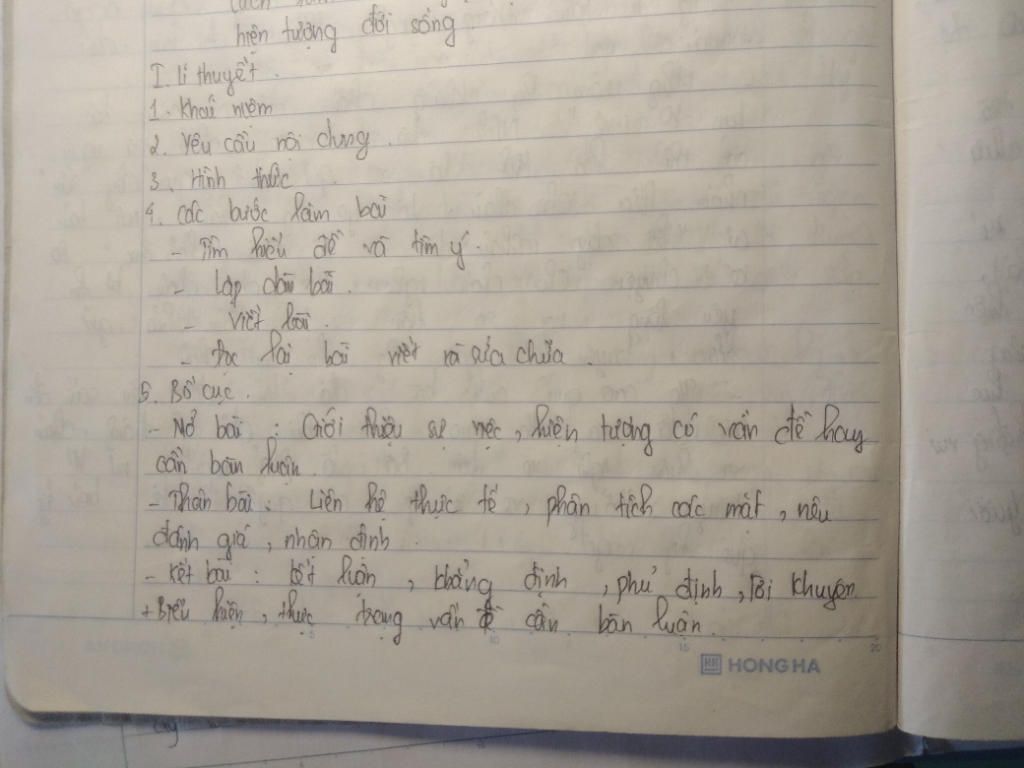 cách
hiện tượng đời sống
I. lí thuyết.
1. Khái niệm
2. Yêu cầu nội dung.
3. Hình thức
4. Các bước làm bài
- Tìm hiểu đề và tìm ý.
- Lập dàn bài.
- Viết bài.
- Đọc lại bài viết và sửa chữa.
5. Bố cục.
- Mở bài: Giới thiệu sự việc, hiện tượng có vấn đề hay
cần bàn luận.
- Thân bài: Liên hệ thực tế, phân tích các mặt, nêu
đánh giá, nhận định.
- Kết bài: kết luận, khẳng định, phủ định, lời khuyên
+ Biểu hiện, thực trạng vấn đề cần bàn luận.
5 10 15 20
HONG HA